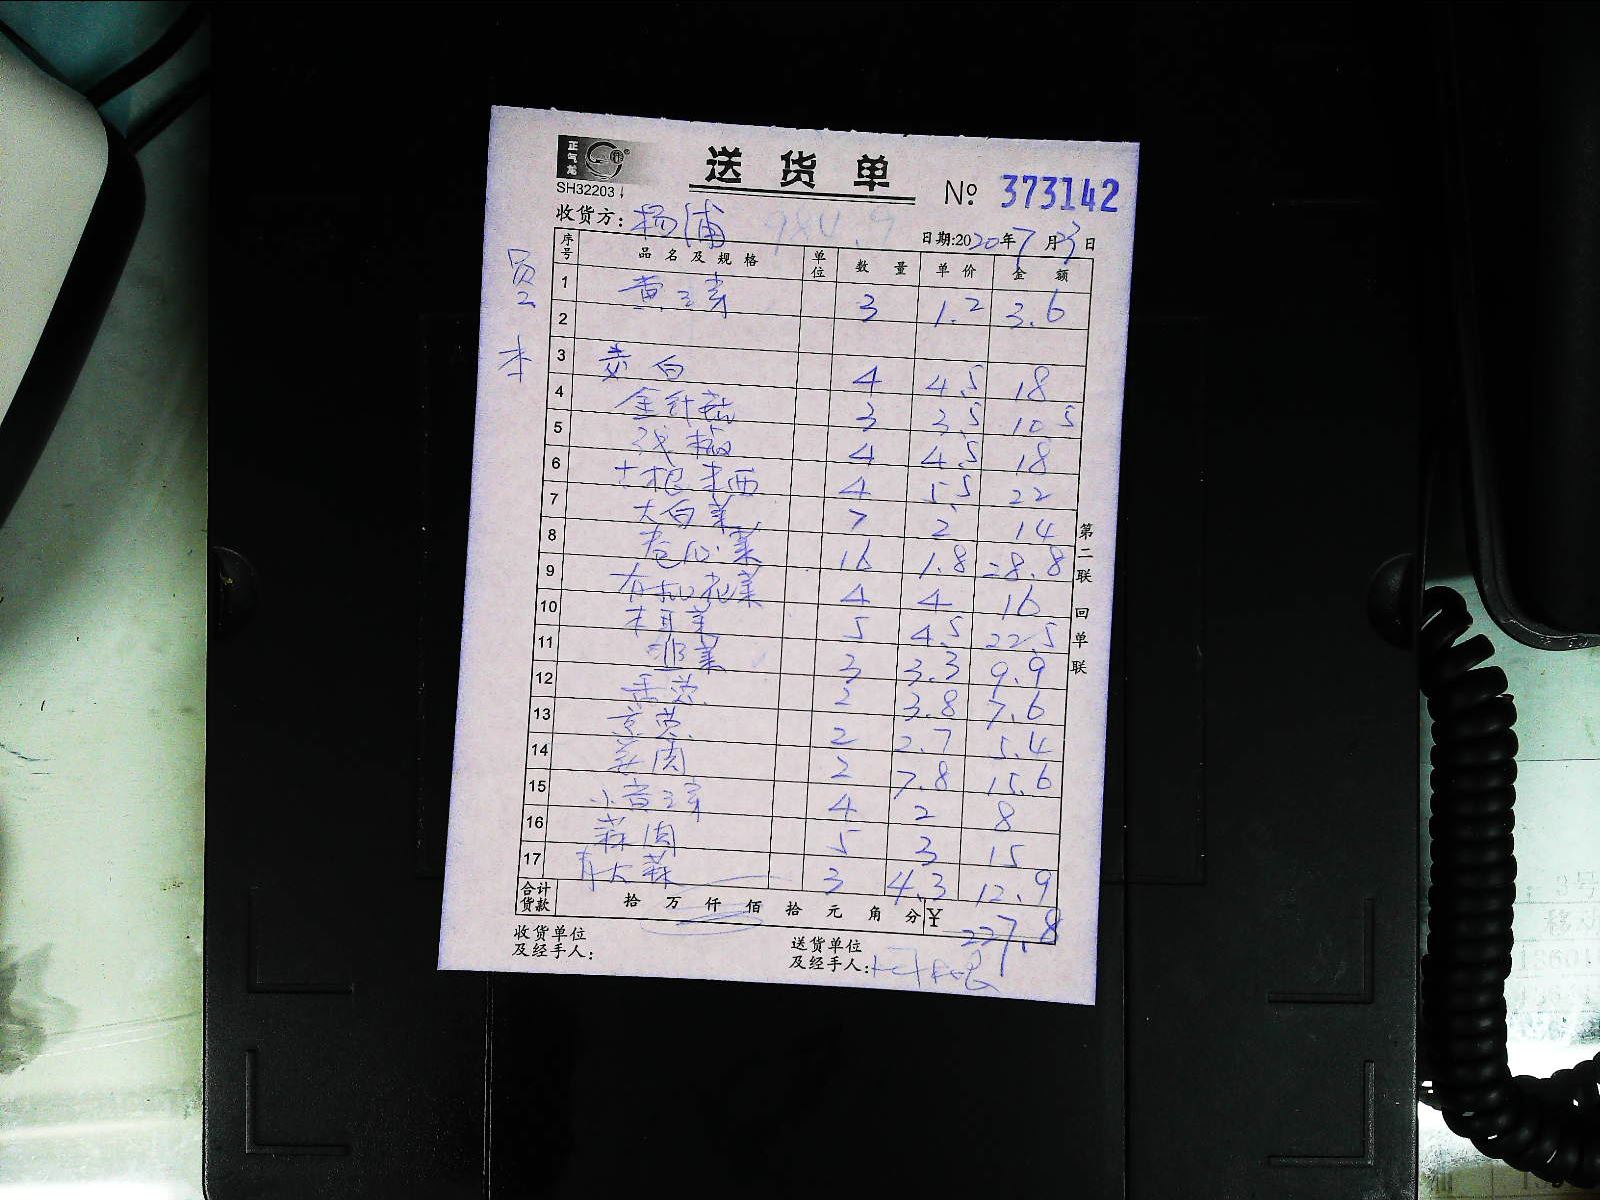 正气龙
送货单
SH32203
№ 373142
收货方：杨浦
日期:2020年7月23日
序号 品名及规格 单位 数量 单价 金额
1 黄豆芽 3 1.2 3.6
2
3 茭白 4 4.5 18
4 金针菇 3 3.5 10.5
5 4 4.5 18
6 4 5.5 22
7 大白菜 7 2 14
8 卷心菜 16 1.8 28.8
9 有机花菜 4 4 16
10 木耳菜 5 4.5 22.5
11 韭菜 3 3.3 9.9
12 香葱 2 3.8 7.6
13 京葱 2 2.7 5.4
14 姜肉 2 7.8 15.6
15 小黄豆芽 4 2 8
16 蒜肉 5 3 15
17 青大蒜 3 4.3 12.9
合计货款 拾 万 仟 佰 拾 元 角 分 ¥ 227.8
收货单位及经手人：
送货单位及经手人：
第二联 回单联